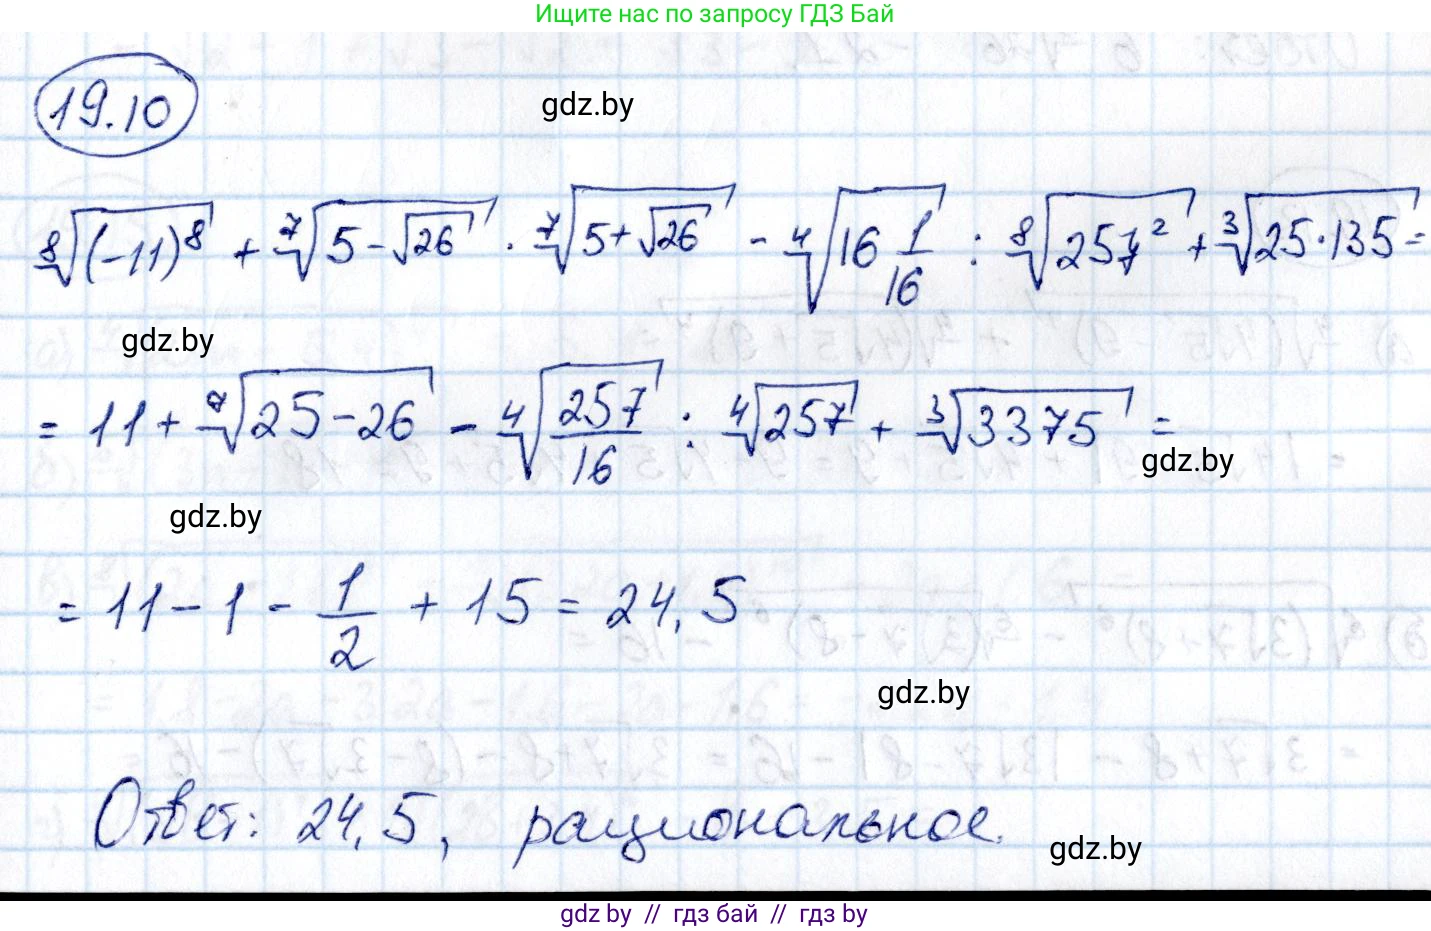 Ищите нас по запросу ГДЗ Бай
19.10
gdz.by
⁸√((-11)⁸) + ⁷√(5-√26) · ⁷√(5+√26) - ⁴√(16 1/16) : ⁸√(257²) + ³√(25·135) =
gdz.by
= 11 + ⁷√(25-26) - ⁴√(257/16) : ⁴√257 + ³√3375 =
gdz.by
gdz.by
= 11 - 1 - 1/2 + 15 = 24,5
gdz.by
Ответ: 24,5, рациональное.
gdz.by
gdz by // гдз бай // гдз by